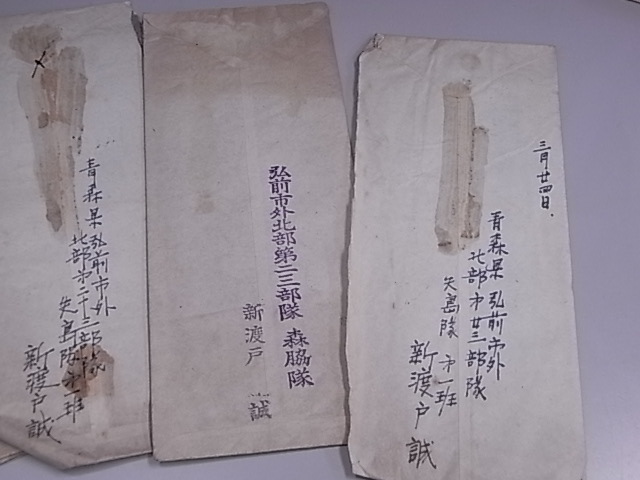 三月廿四日.
青森県弘前市外
北部第廿三部隊
矢島隊第一班
新渡戸誠
弘前市外北部第二三部隊 森脇隊
新渡戸 誠
青森県弘前市外
北部第二十三部隊
矢島隊第一班
新渡戸誠